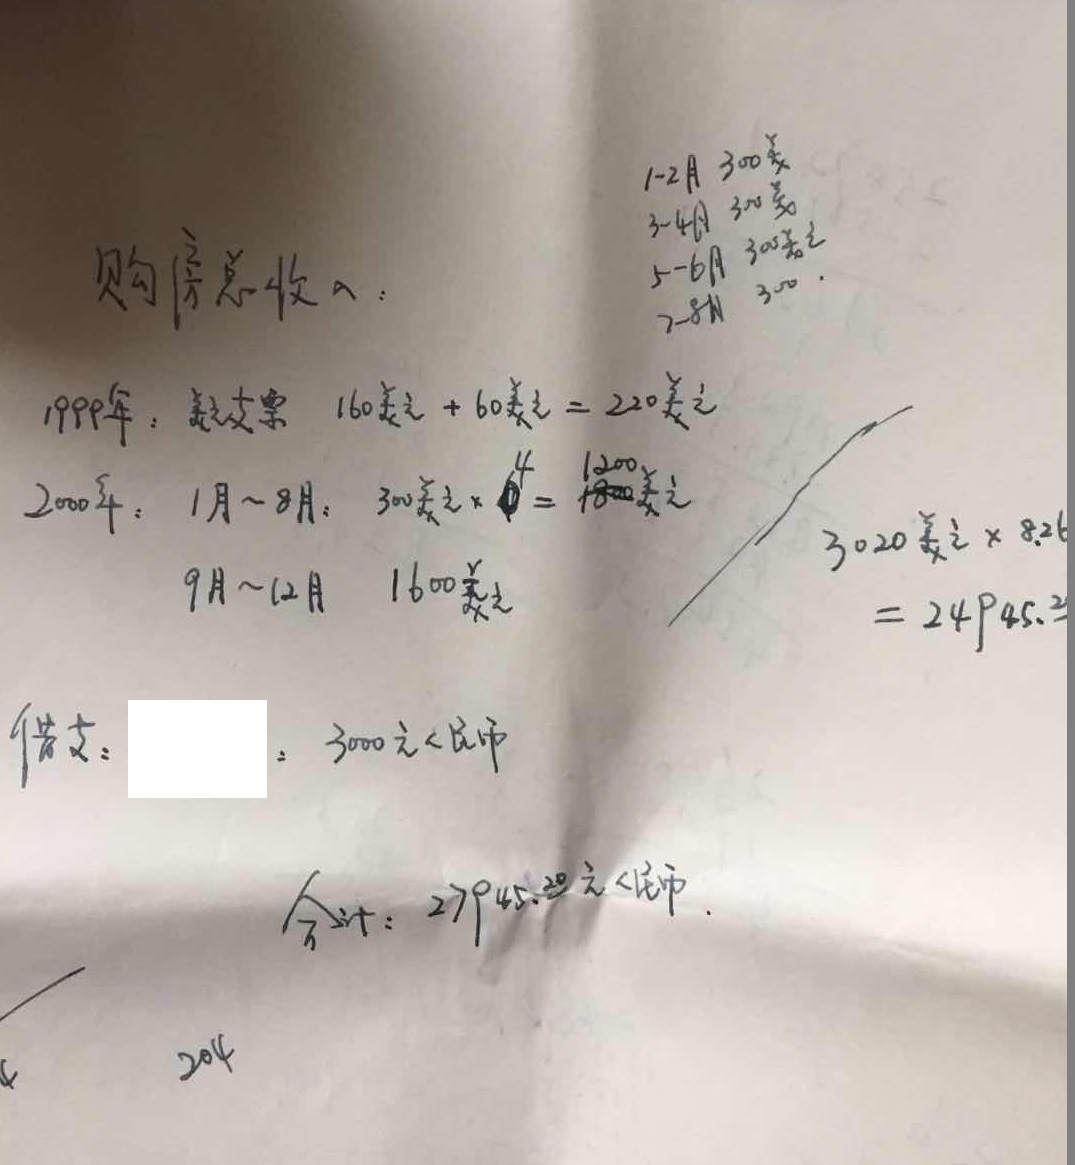 1-2月 300美
3-4月 300美
5-6月 300美元
7-8月 300.
购房总收入:
1999年: 美元支票 160美元 + 60美元 = 220美元
2000年: 1月~8月: 300美元 × 4 = 1200美元
9月~12月 1600美元
3020美元 × 8.26
= 24945.2
借支: : 3000元人民币
合计: 27945.20元人民币.
4 204